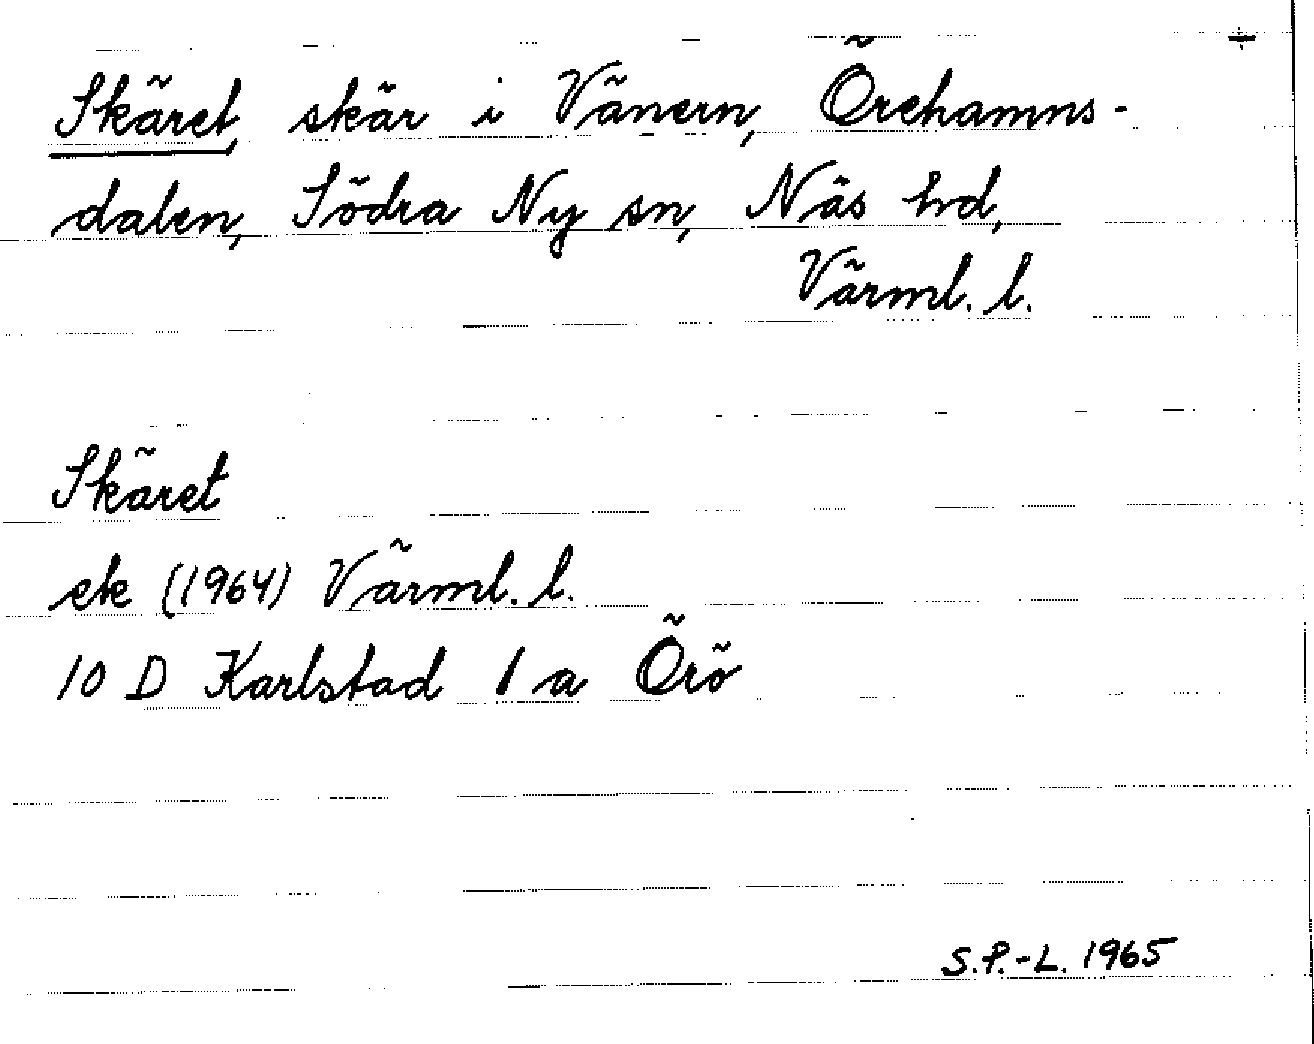 Skäret, skär i Vänern, Örehamns-
dalen, Södra Ny sn, Näs hd,
Värml. l.
Skäret
ek (1964) Värml. l.
10 D Karlstad 1 a Örö
S.P.-L. 1965